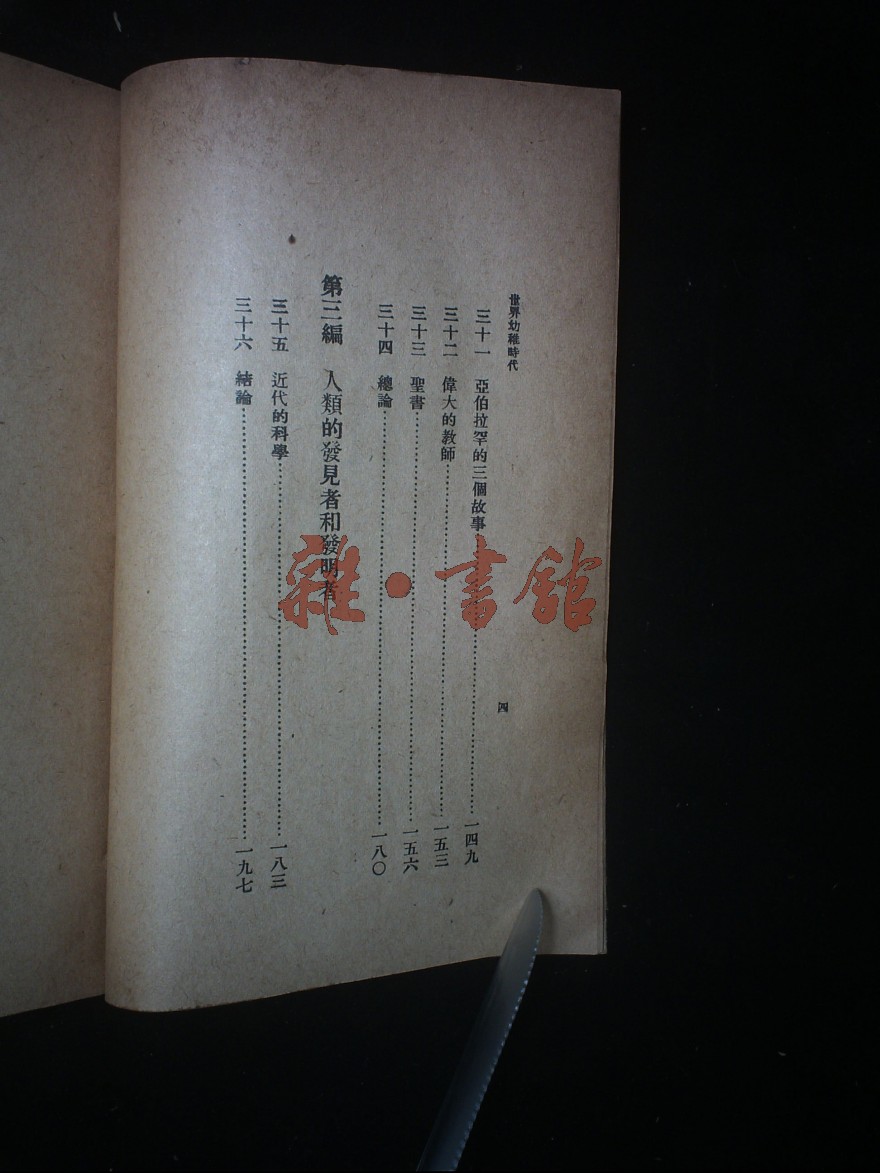 世界幼稚時代
四
三十一 亞伯拉罕的三個故事……一四九
三十二 偉大的教師……一五三
三十三 聖書……一五六
三十四 總論……一八〇
第三編 人類的發見者和發明者
三十五 近代的科學……一八三
三十六 結論……一九七
雜·書館